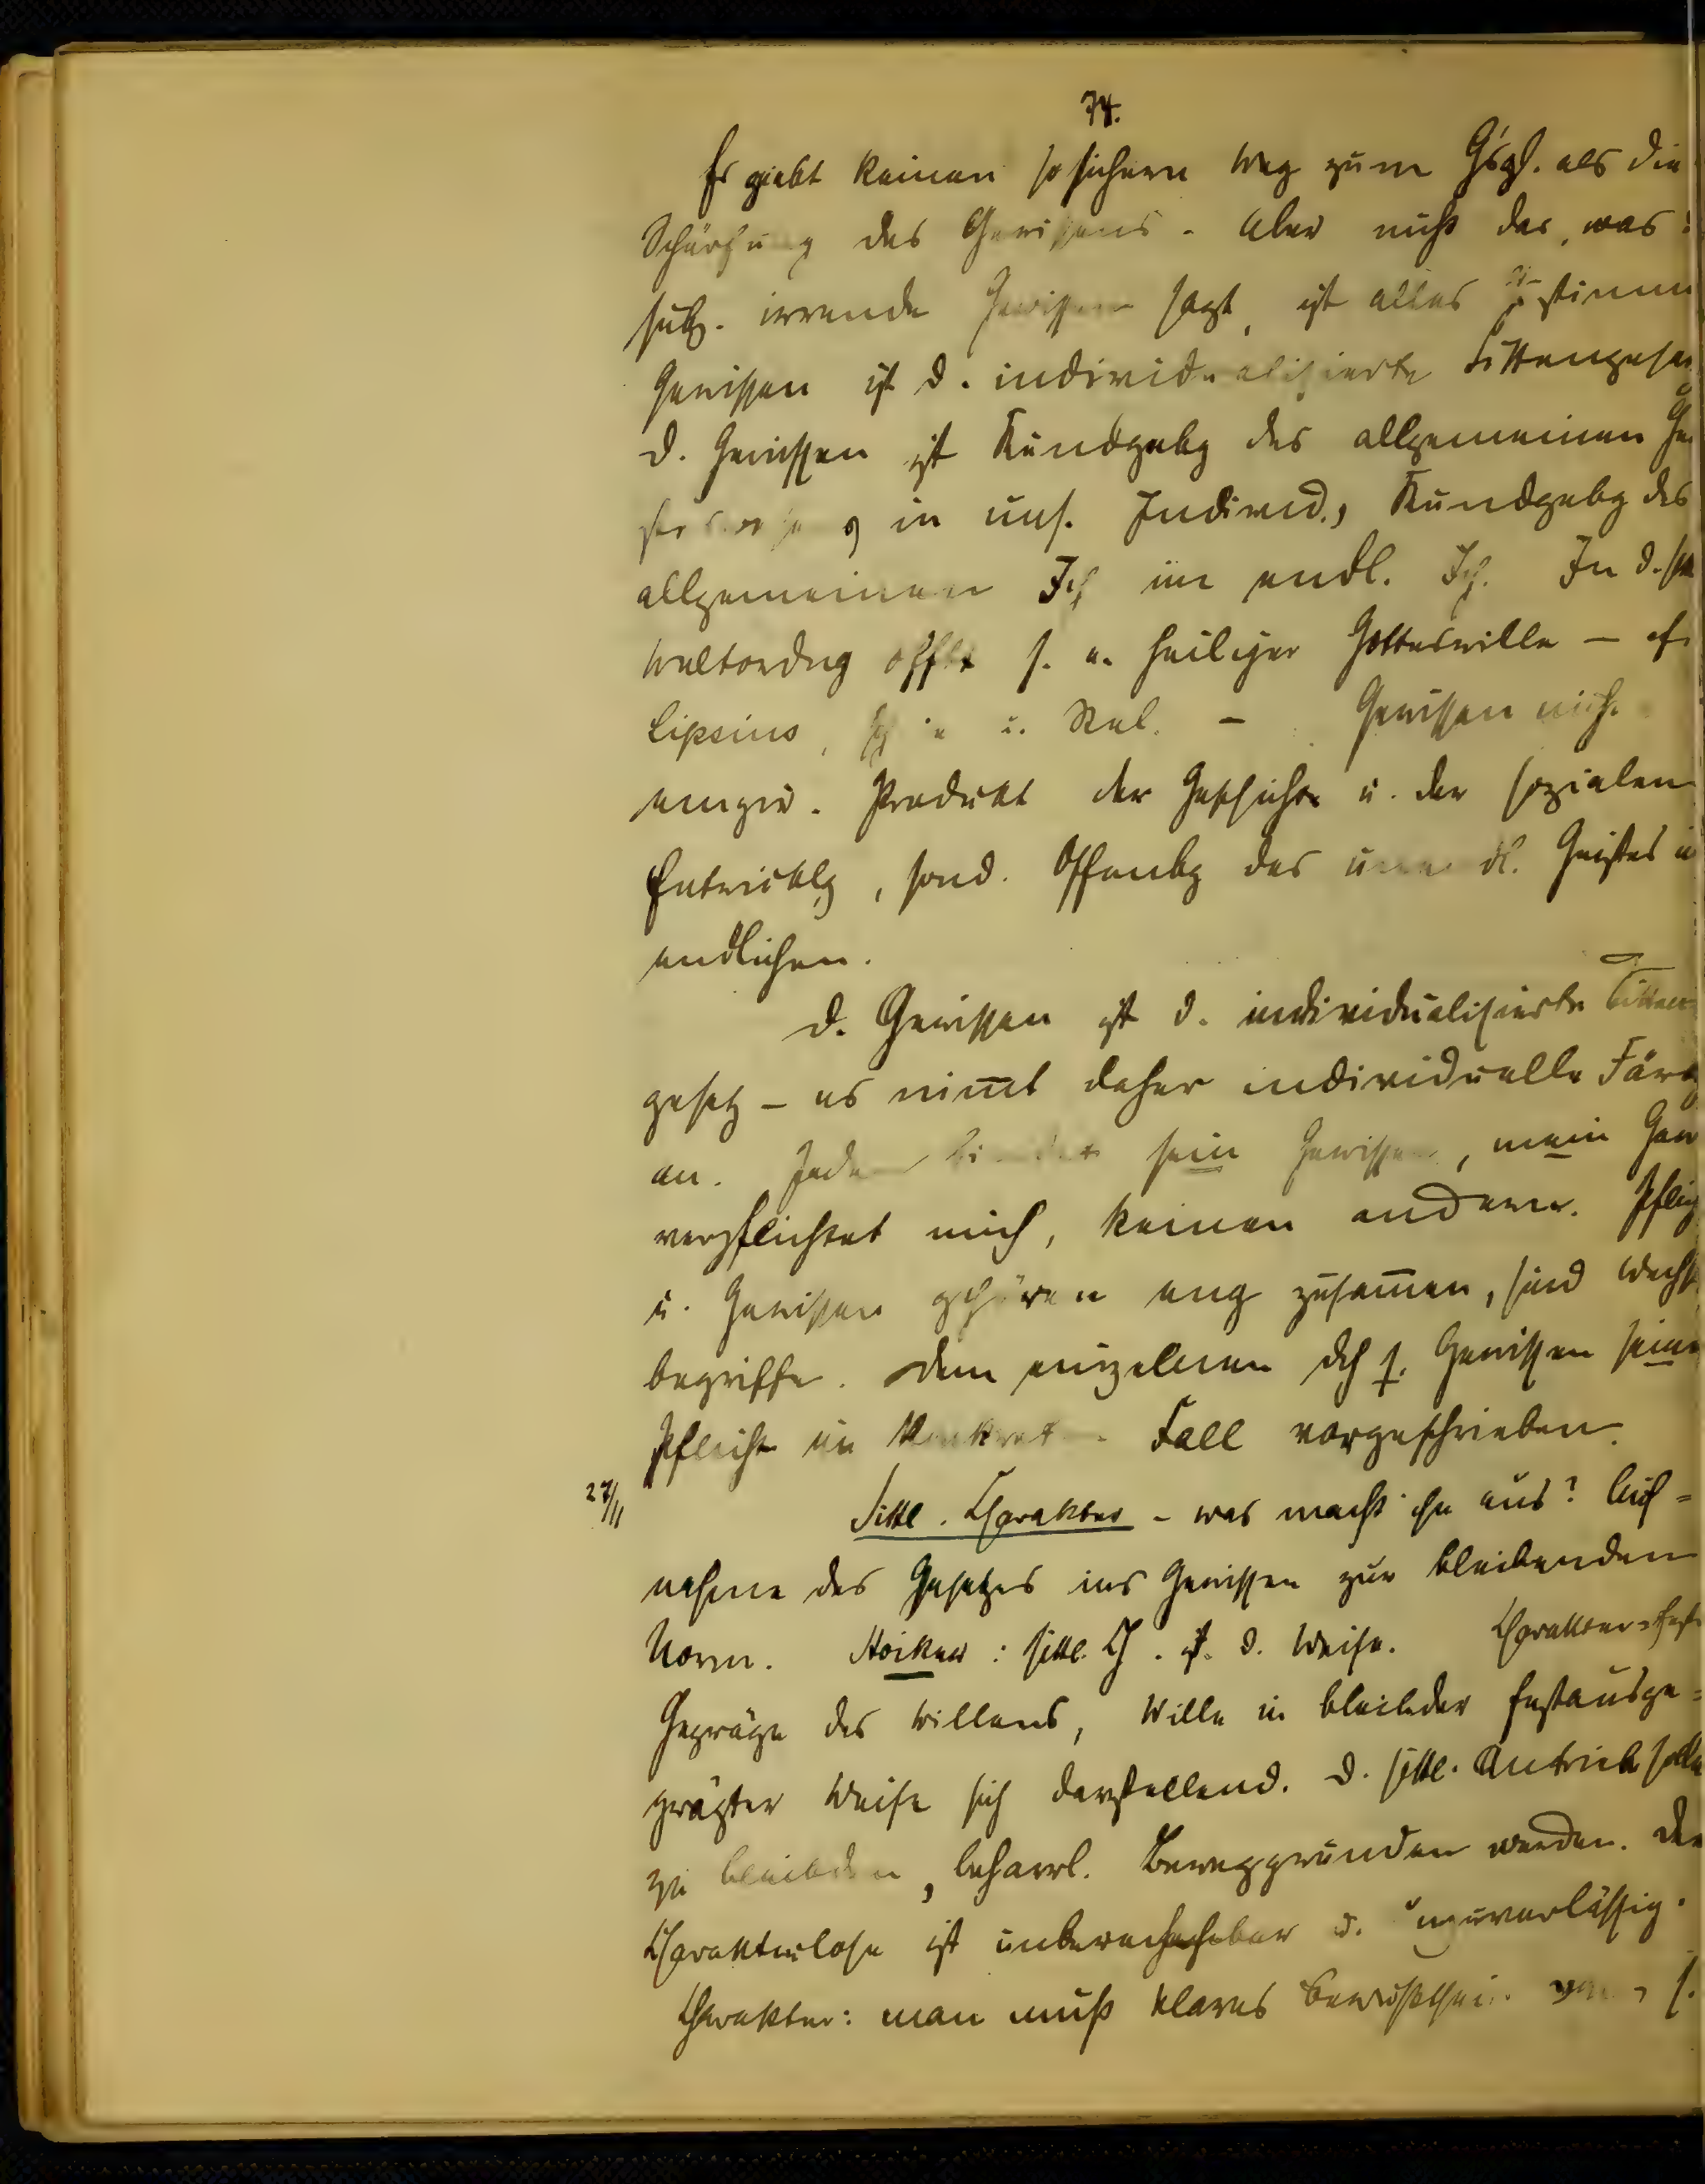 74.
Es giebt keinen so sichern Weg zum als die
Schärfung des Gewissens. Aber nicht das, was
subj. irrende Gewissen sagt, ist alles
Gewissen ist d. individualisierte
D. Gewissen ist Kundgebg des allgemeinen
in uns. Individ., Kundgebg des
allgemeinen Ich im endl. Ich. In d.
Weltordng offbt s. e. heiliger Gotteswille – cf.
Lipsius, u. Rel. – Gewissen nicht
empir. Produkt der Geschichte u. der sozialen
Entwicklg, sond. Offenbg des unendl. Geistes
endlichen.
D. Gewissen ist d. individualisierte Sitten
gesetz – es nimt daher individuelle
an. Jeden bindet sein Gewissen, mein
verpflichtet mich, keinen andern.
u. Gewissen gehören eng zusamen, sind
begriffe. Dem einzelnen dch s. Gewissen seine
Pflicht im konkreten Fall vorgeschrieben.
27/11
Sittl. Charakter – was macht ihn aus? Auf=
nahme des Gesetzes ins Gewissen zur bleibenden
Norm. Stoiker: sittl. Ch. ist d. Weise. Charakter =
Gepräge des Willens, Wille in bleibder festausge=
prägter Weise sich darstellend. D. sittl. Antrieb
zu bleibden, beharrl. Beweggründen werden. Der
Charakterlose ist unberechenbar u. unzuverlässig.
Charakter: man muß klares Bewußtsein s.